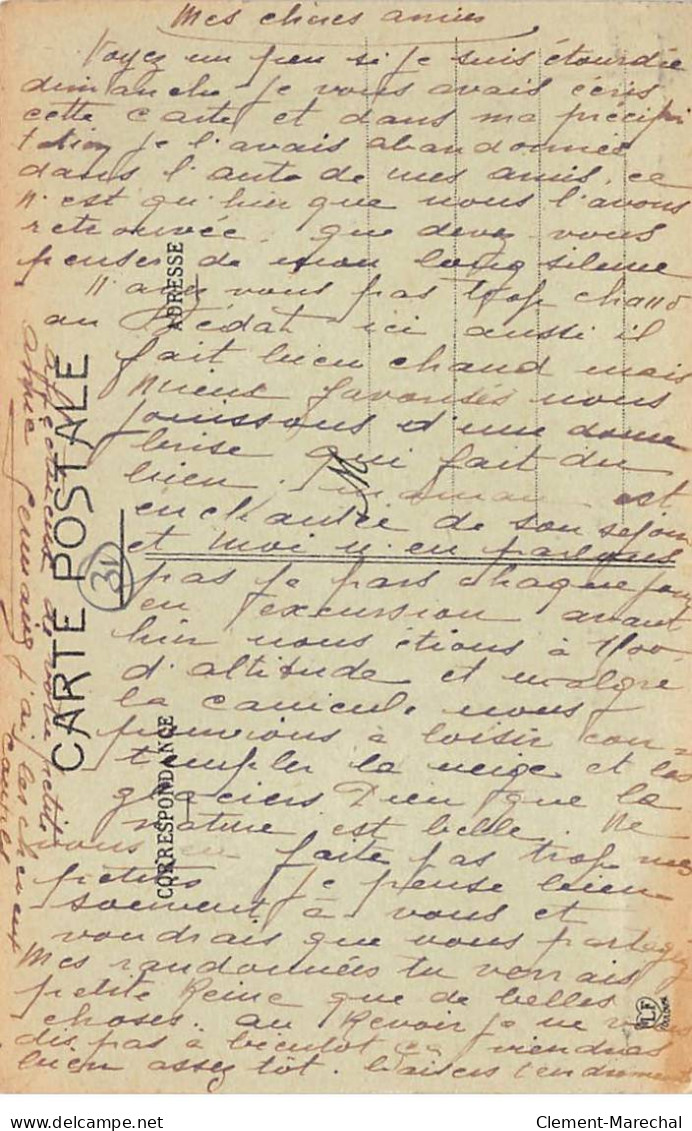 Mes chères amies
Voyez un peu si je suis étourdie
dimanche je vous avais écris
cette carte et dans ma précipi
tation je l'avais abandonnée
dans l'auto de mes amis. ce
n'est qu'hier que nous l'avons
retrouvée. que devez vous
penser de mon long silence
N'avez vous pas trop chaud
au Dédat ici aussi il
fait bien chaud mais
mieux favorisés nous
jouissons d'une douce
brise qui fait du
bien. Maman est
enchantée de son séjour
et moi n'en parlons
pas je pars chaque jour
en excursion avant
hier nous étions à 1100
d'altitude et malgré
la canicule nous
pouvions à loisir con=
templer la neige et les
glaciers Dieu que la
nature est belle. Ne
vous en faite pas trop mes
petites je pense bien
souvent à vous et
voudrais que vous partagiez
Mes randonnées tu verrais
petite Reine que de belles
choses. au Revoir je ne vous
dis pas à bientôt ça viendras
bien assez tôt. baisers tendrement
affectueux de votre petite
amie Germaine j'ai les cheveux
coupés
CARTE POSTALE
31
ADRESSE
CORRESPONDANCE
LF
Clement-Marechal